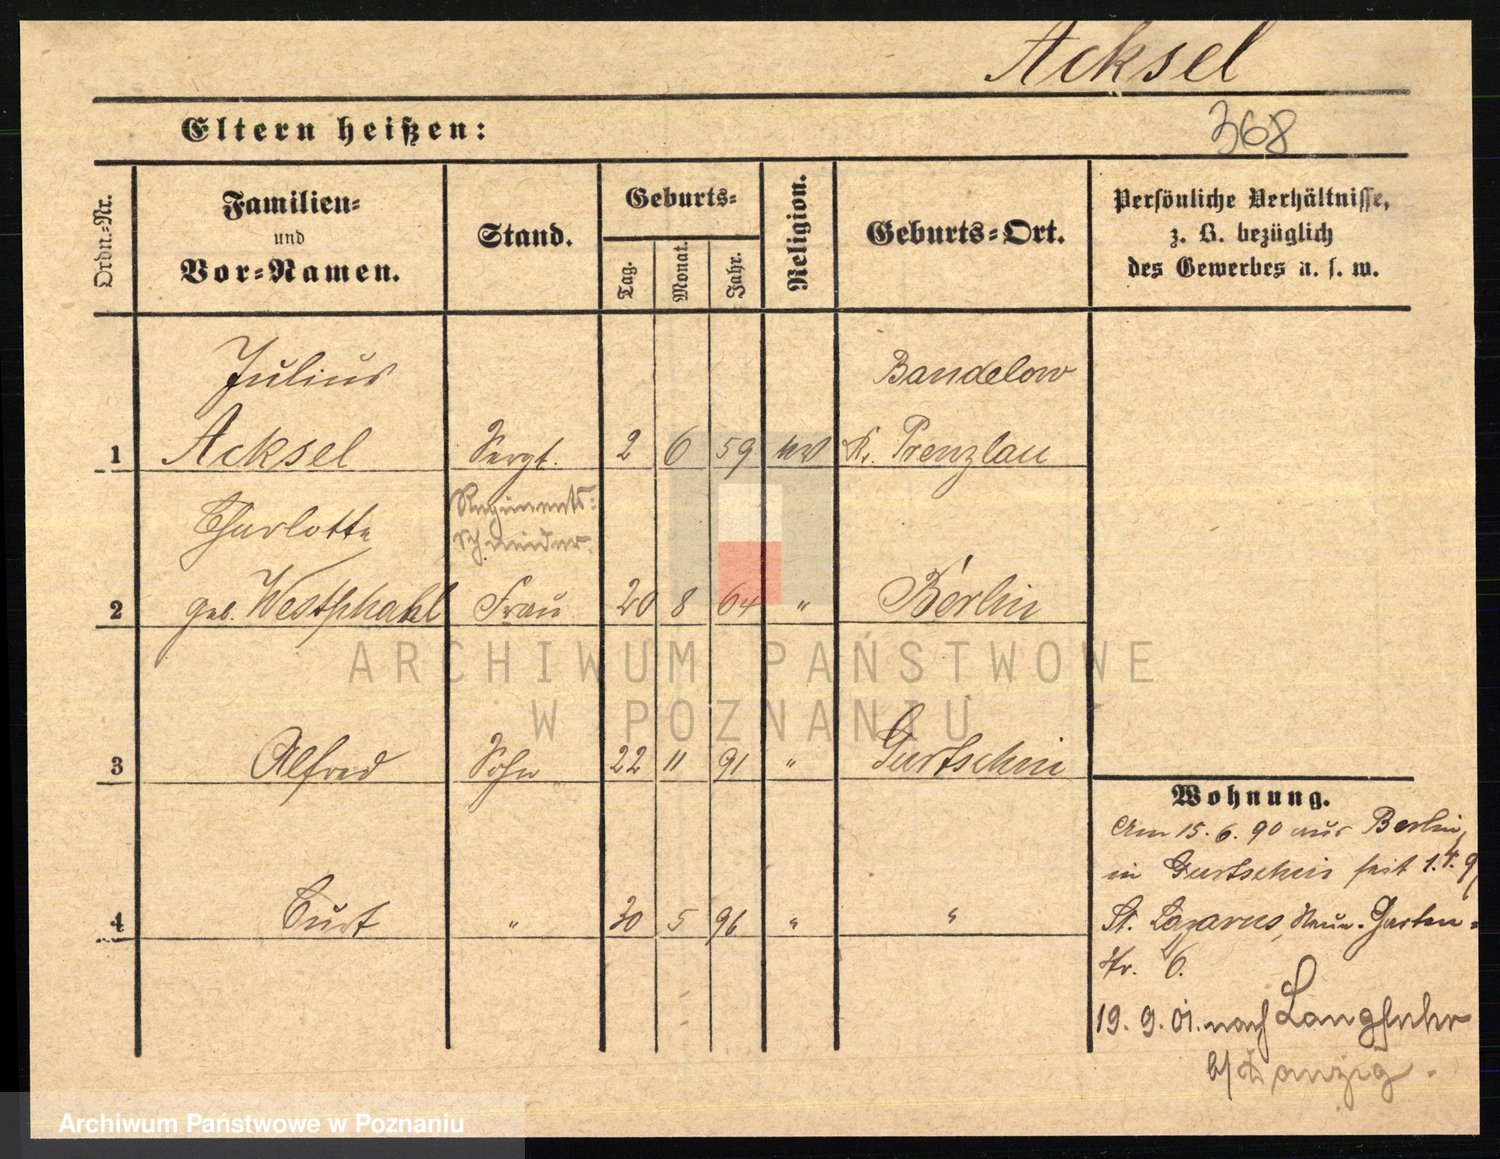 Acksel
Eltern heißen:
368
Ordn.-Nr.
Familien-
und
Vor-Namen.
Stand.
Geburts-
Tag.
Monat.
Jahr.
Religion.
Geburts-Ort.
Persönliche Verhältnisse,
z. B. bezüglich
des Gewerbes u. s. w.
Julius
Bandelow
1 Acksel Sergt. 2 6 59 Kr. Prenzlau
Charlotte
Regiments-
Schneider
2 geb. Westphahl Frau 20 8 64 " Berlin
ARCHIWUM PAŃSTWOWE
W POZNANIU
3 Alfred Sohn 22 11 91 " Gurtschin
Wohnung.
Am 15. 6. 90 aus Berlin,
in Gurtschin seit 1.4.9
4 Curt " 30 5 96 " "
St. Lazarus, Garten-
Nr. 6.
19. 9. 01. nach Langfuhr
b/Danzig.
Archiwum Państwowe w Poznaniu